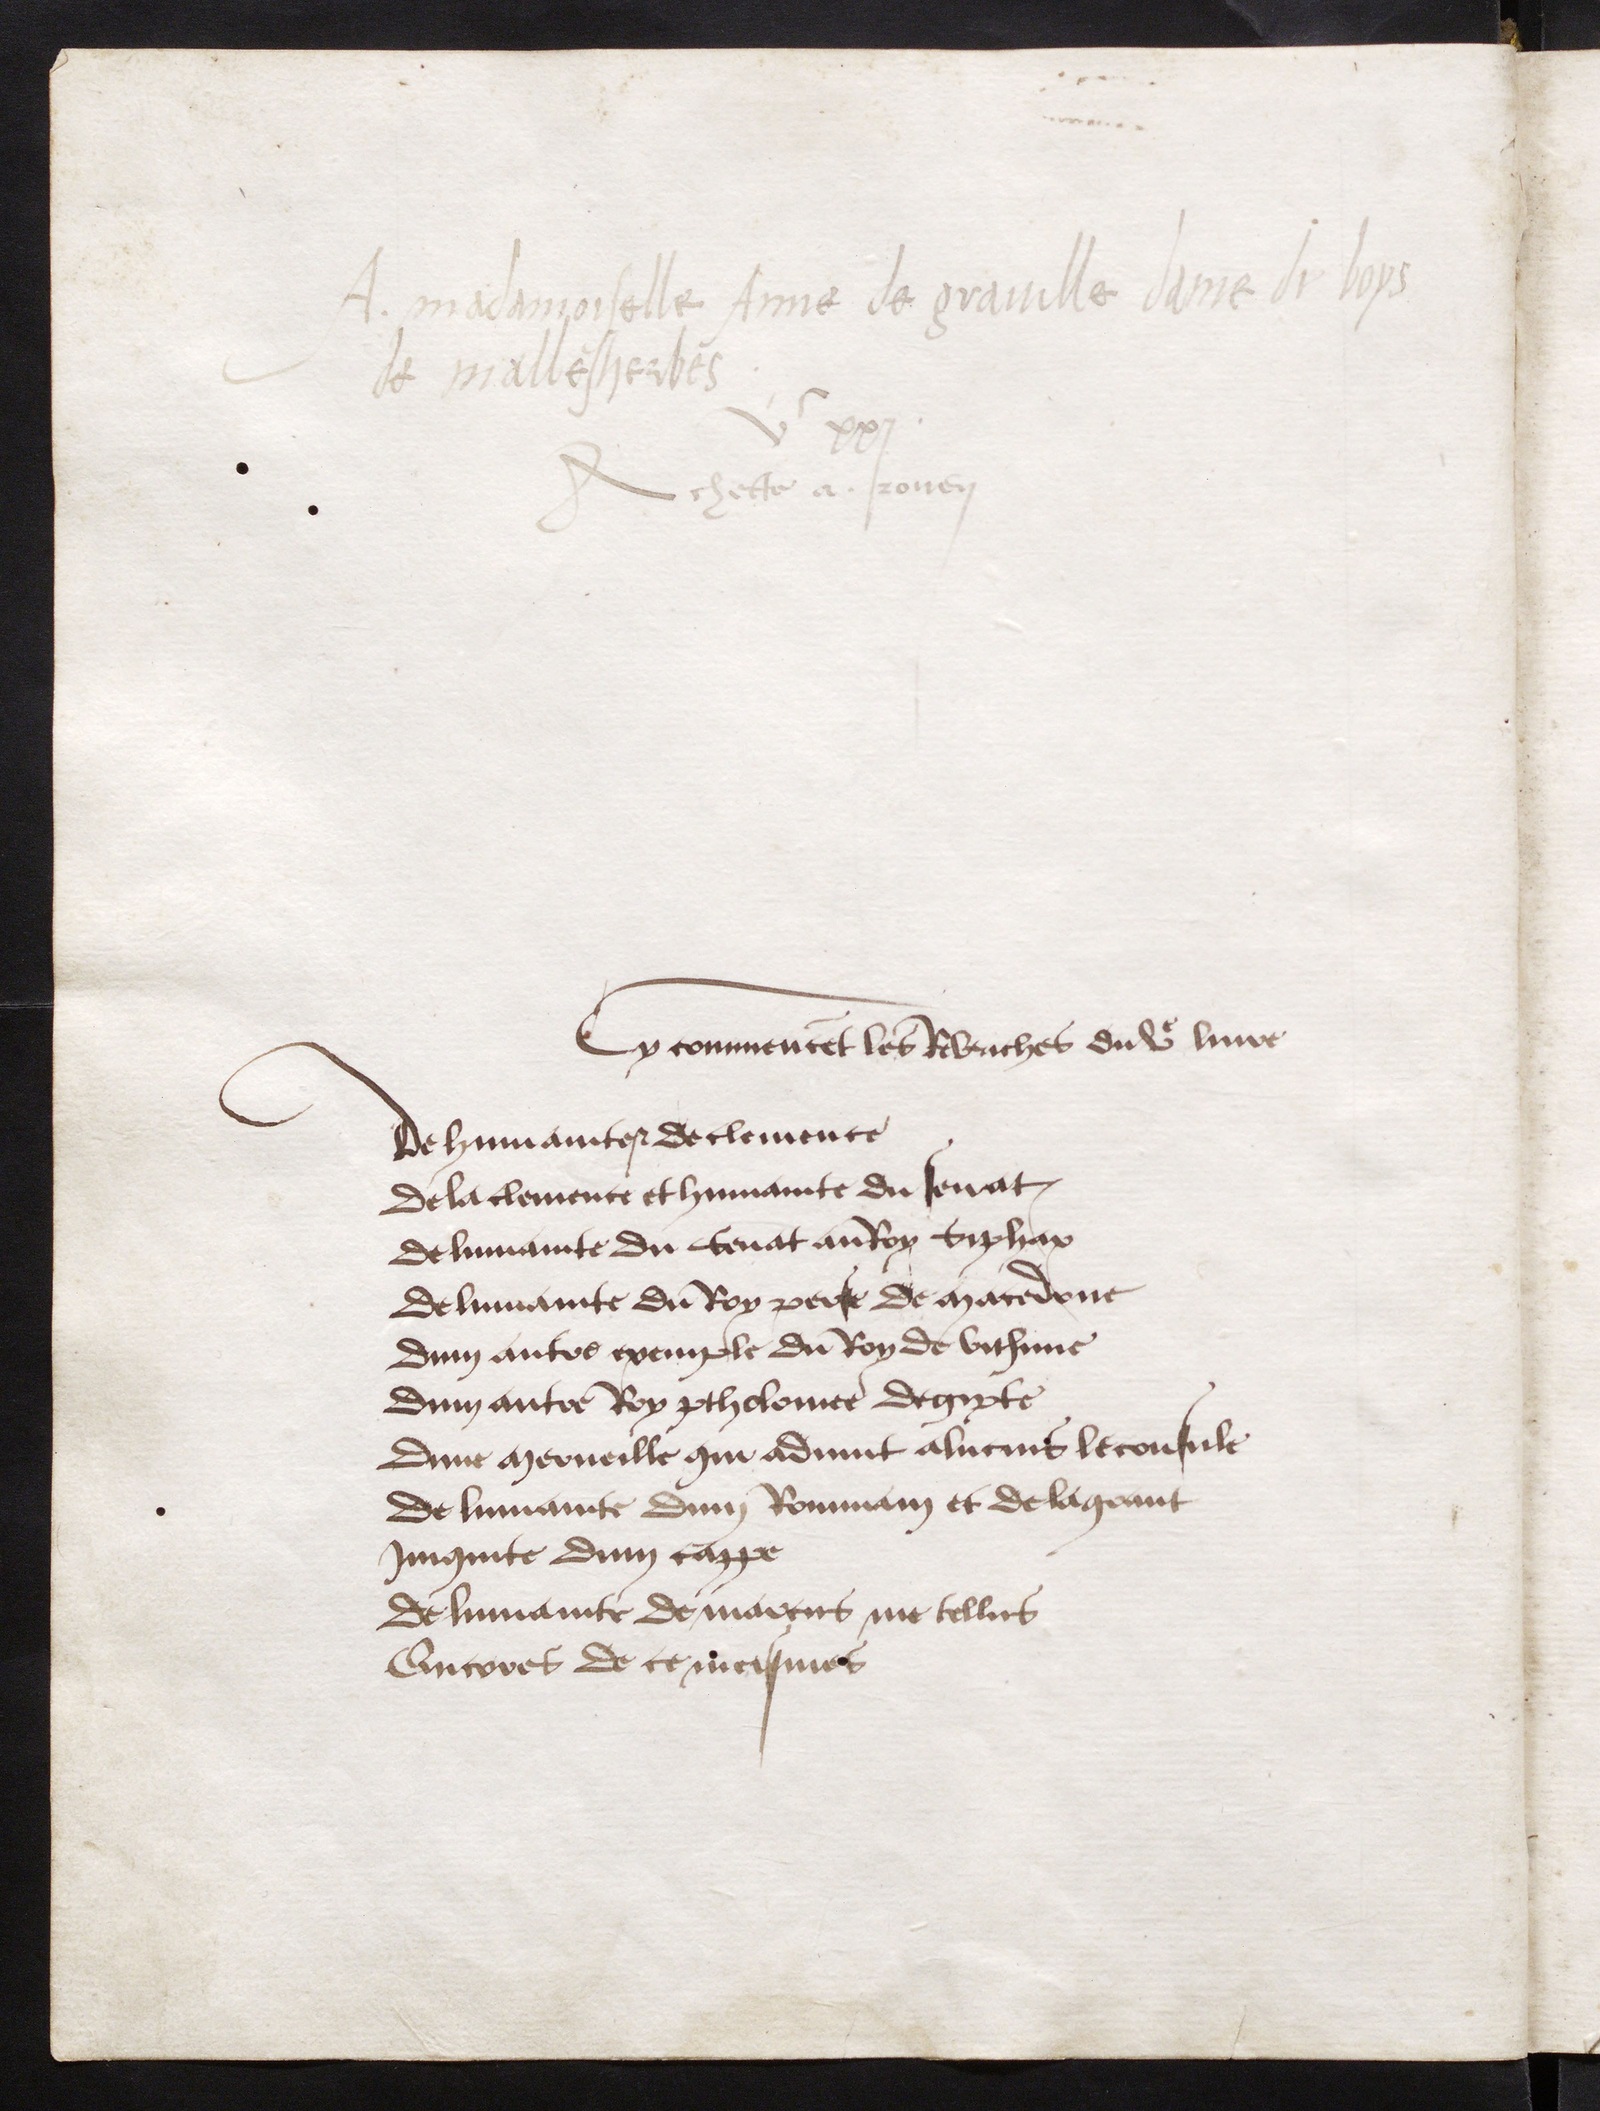 A. madamoiselle Anne de grauille dame du boys
de mallesherbes
vᶜ xxj
Achette a. rouen
Cy commencẽt les Rebriches du vᵉ liure
De humanite & de clemence
de la clemence et humanite du senat
de lumanite du senat au Roy Siphax
de lumanite du Roy perse de macedone
dun autre exemple du Roy de bithinie
dun autre Roy ptholomee degipte
dune merueille qui aduint a lucius le consule
de lumanite dun Rommain et de la grant
Iniquite dun cappe
de lumanite de marcus metellus
Encores de ce meismes